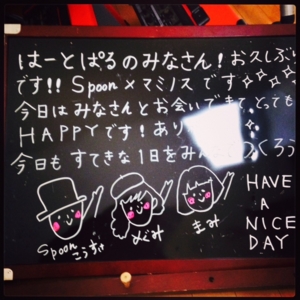 はーとぱるのみなさん!お久しぶり
です!! Spoon×マミノスです
今日はみなさんとお会いできて、とっても
HAPPYです!あり
今日もすてきな1日をみんなでつくろう
HAVE
A
NICE
DAY
Spoon
こうすけ
めぐみ
まみ